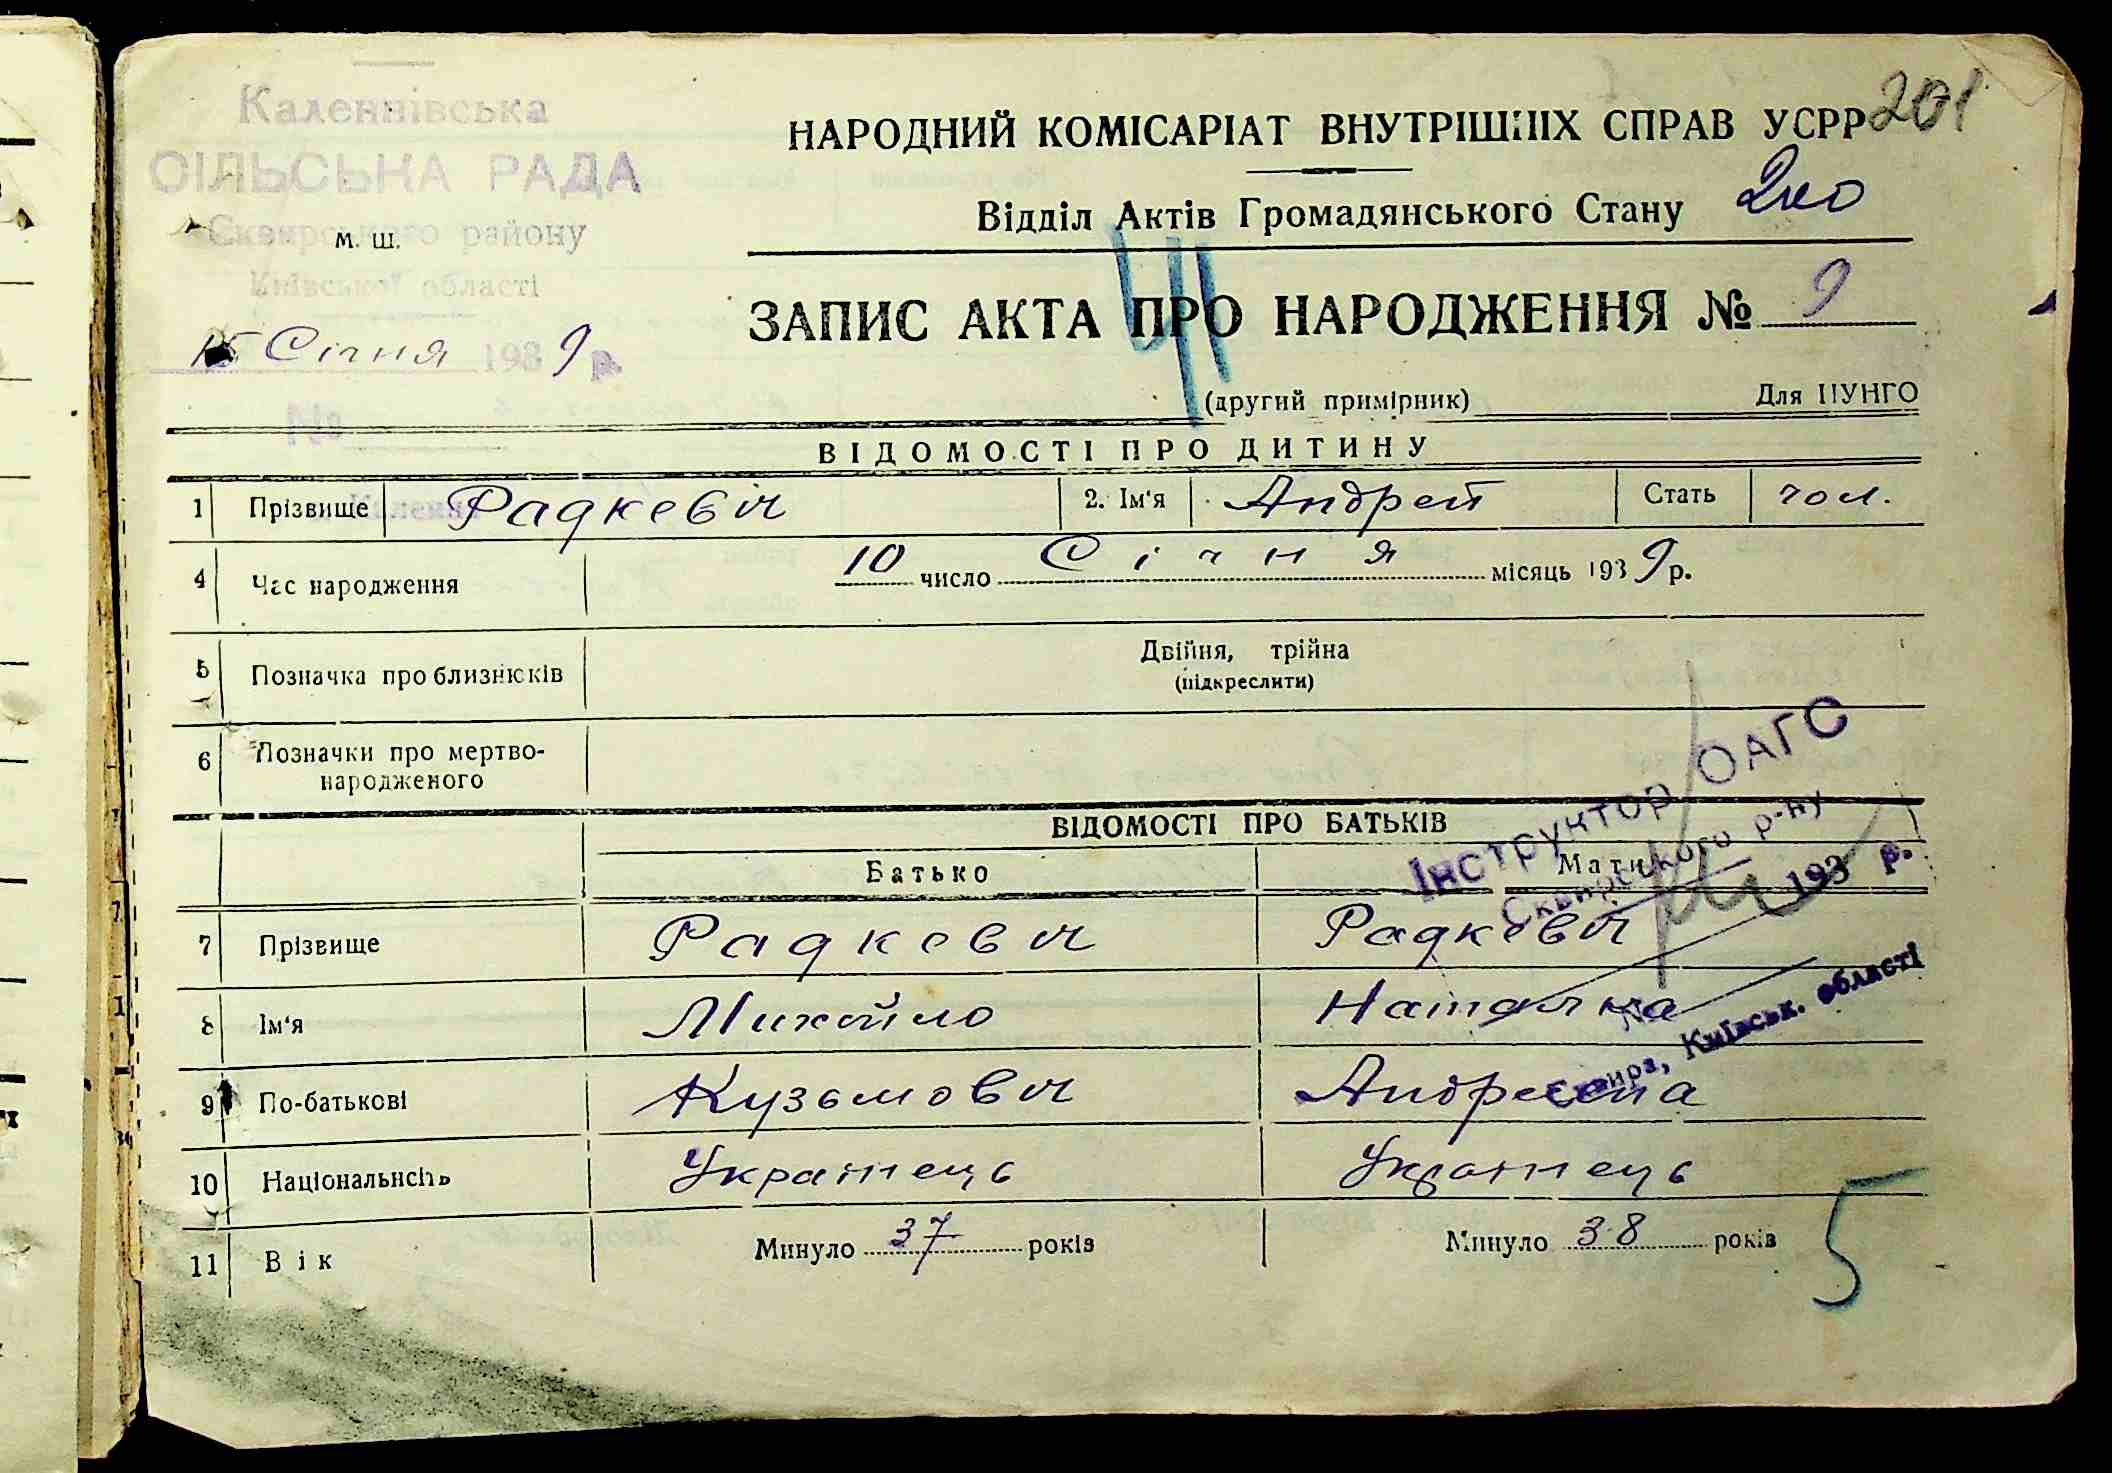 Каленнівська
СІЛЬСЬКА РАДА
Сквирського району
м. ш.
Київської області
15 Січня 1939 р.
№
НАРОДНИЙ КОМІСАРІАТ ВНУТРІШНІХ СПРАВ УСРР
201
Відділ Актів Громадянського Стану
200
41
ЗАПИС АКТА ПРО НАРОДЖЕННЯ № 9
(другий примірник) Для ЦУНГО
ВІДОМОСТІ ПРО ДИТИНУ
1 Прізвище Радкевіч 2. Ім'я Андрей Стать чол.
4 Час народження 10 число Січня місяць 1939 р.
5 Позначка про близнюків Двійня, трійна
(підкреслити)
6 Позначки про мертво-
народженого
ВІДОМОСТІ ПРО БАТЬКІВ
Батько Мати
7 Прізвище Радкевіч Радкевіч
8 Ім'я Михайло Наталка
9 По-батькові Кузьмовіч Андреевна
10 Національність Українець Українець
11 Вік Минуло 37 років Минуло 38 років
Інструктор ОАГС
Сквирського р-ну
193 р.
№
Сквира, Київськ. області
5